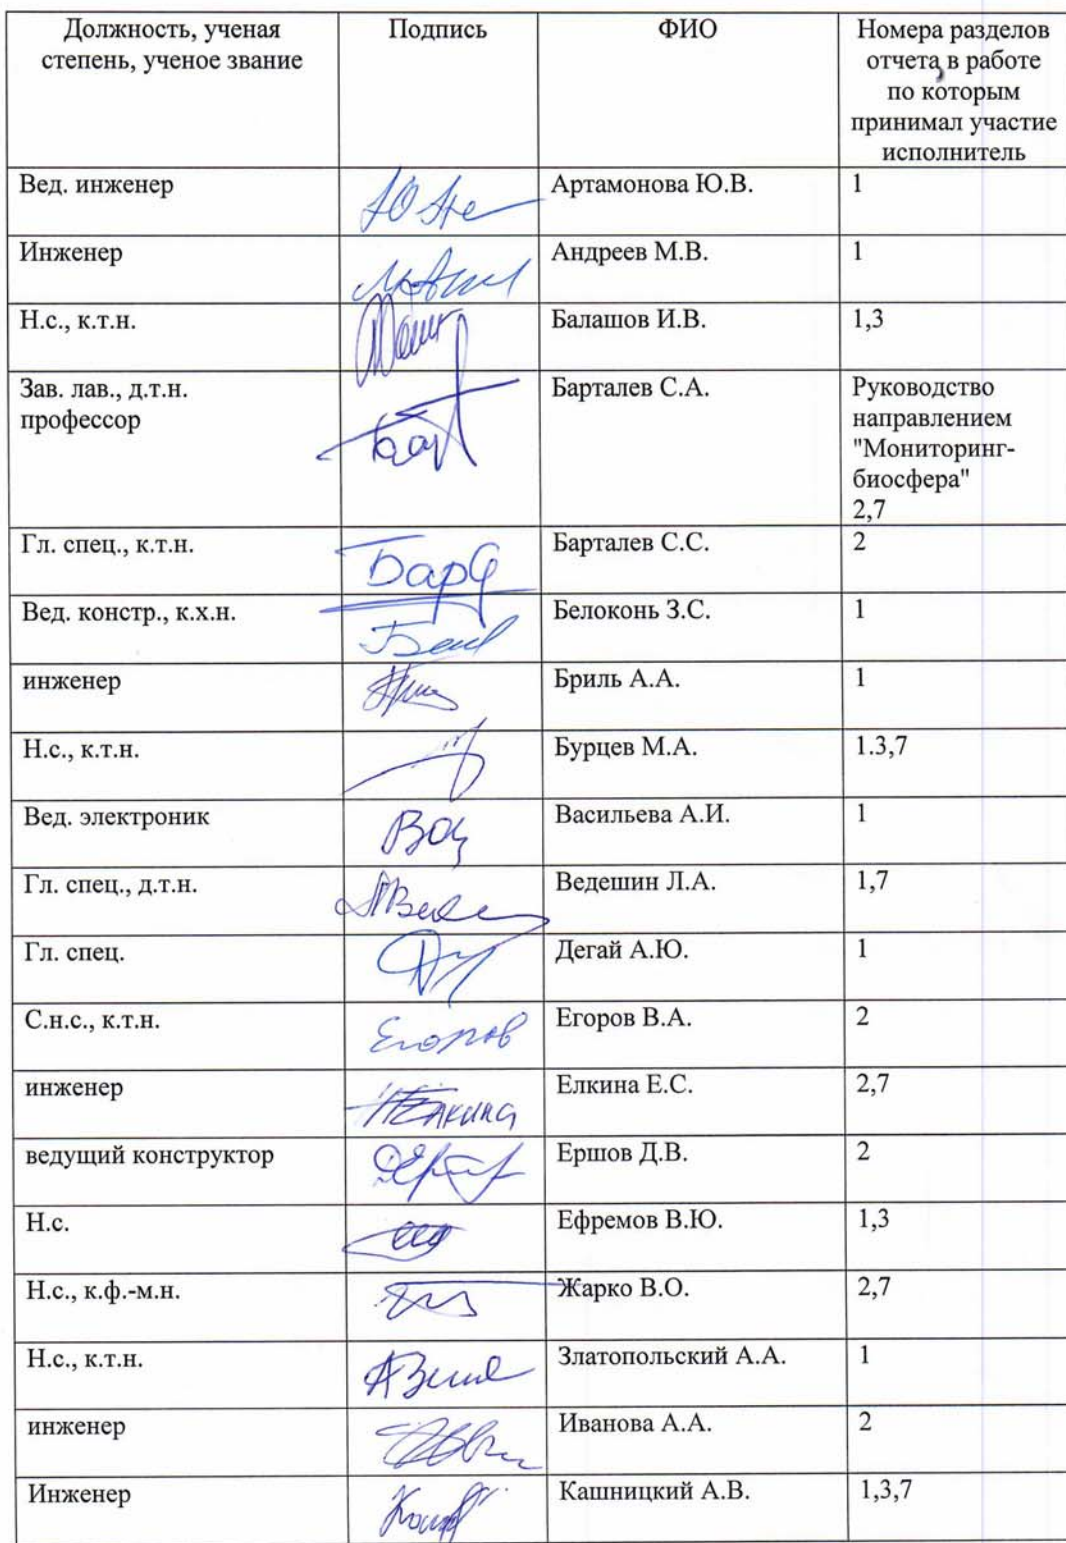 Должность, ученая степень, ученое звание
Подпись
ФИО
Номера разделов отчета в работе по которым принимал участие исполнитель
Вед. инженер
Артамонова Ю.В.
1
Инженер
Андреев М.В.
1
Н.с., к.т.н.
Балашов И.В.
1,3
Зав. лав., д.т.н.
профессор
Барталев С.А.
Руководство
направлением
"Мониторинг-
биосфера"
2,7
Гл. спец., к.т.н.
Барталев С.С.
2
Вед. констр., к.х.н.
Белоконь З.С.
1
инженер
Бриль А.А.
1
Н.с., к.т.н.
Бурцев М.А.
1.3,7
Вед. электроник
Васильева А.И.
1
Гл. спец., д.т.н.
Ведешин Л.А.
1,7
Гл. спец.
Дегай А.Ю.
1
С.н.с., к.т.н.
Егоров
Егоров В.А.
2
инженер
Елкина Е.С.
2,7
ведущий конструктор
Ершов Д.В.
2
Н.с.
Ефремов В.Ю.
1,3
Н.с., к.ф.-м.н.
Жарко В.О.
2,7
Н.с., к.т.н.
Златопольский А.А.
1
инженер
Иванова А.А.
2
Инженер
Кашницкий А.В.
1,3,7